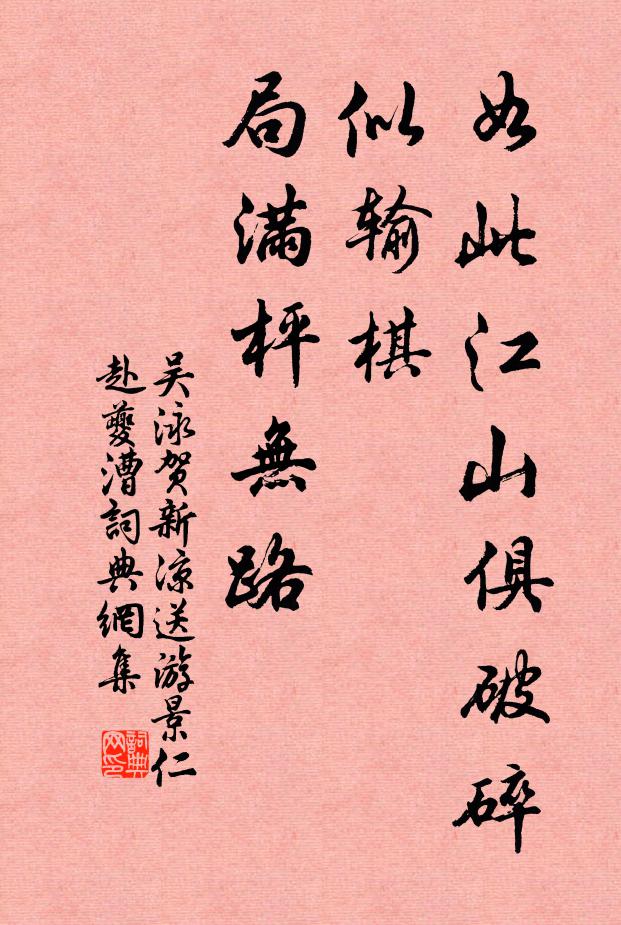 如此江山俱破碎
似输棋
局满枰無路
吴泳贺新凉送游景仁
赴夔漕詞典網集
詞典网印